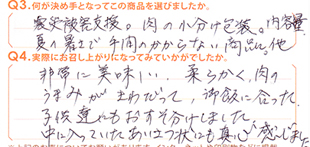 Q3.何が決め手となってこの商品を選びましたか。
震災被害支援。肉の小分け包装。内容量
夏の暑さで手間のかからない商品に他
Q4.実際にお召し上がりになってみていかがでしたか。
非常に美味しい、柔らかく、肉の
うまみがまわだって、御飯に合った
子供達にもおすそ分けしました
中に入っていたあいさつ状にも真心感じました